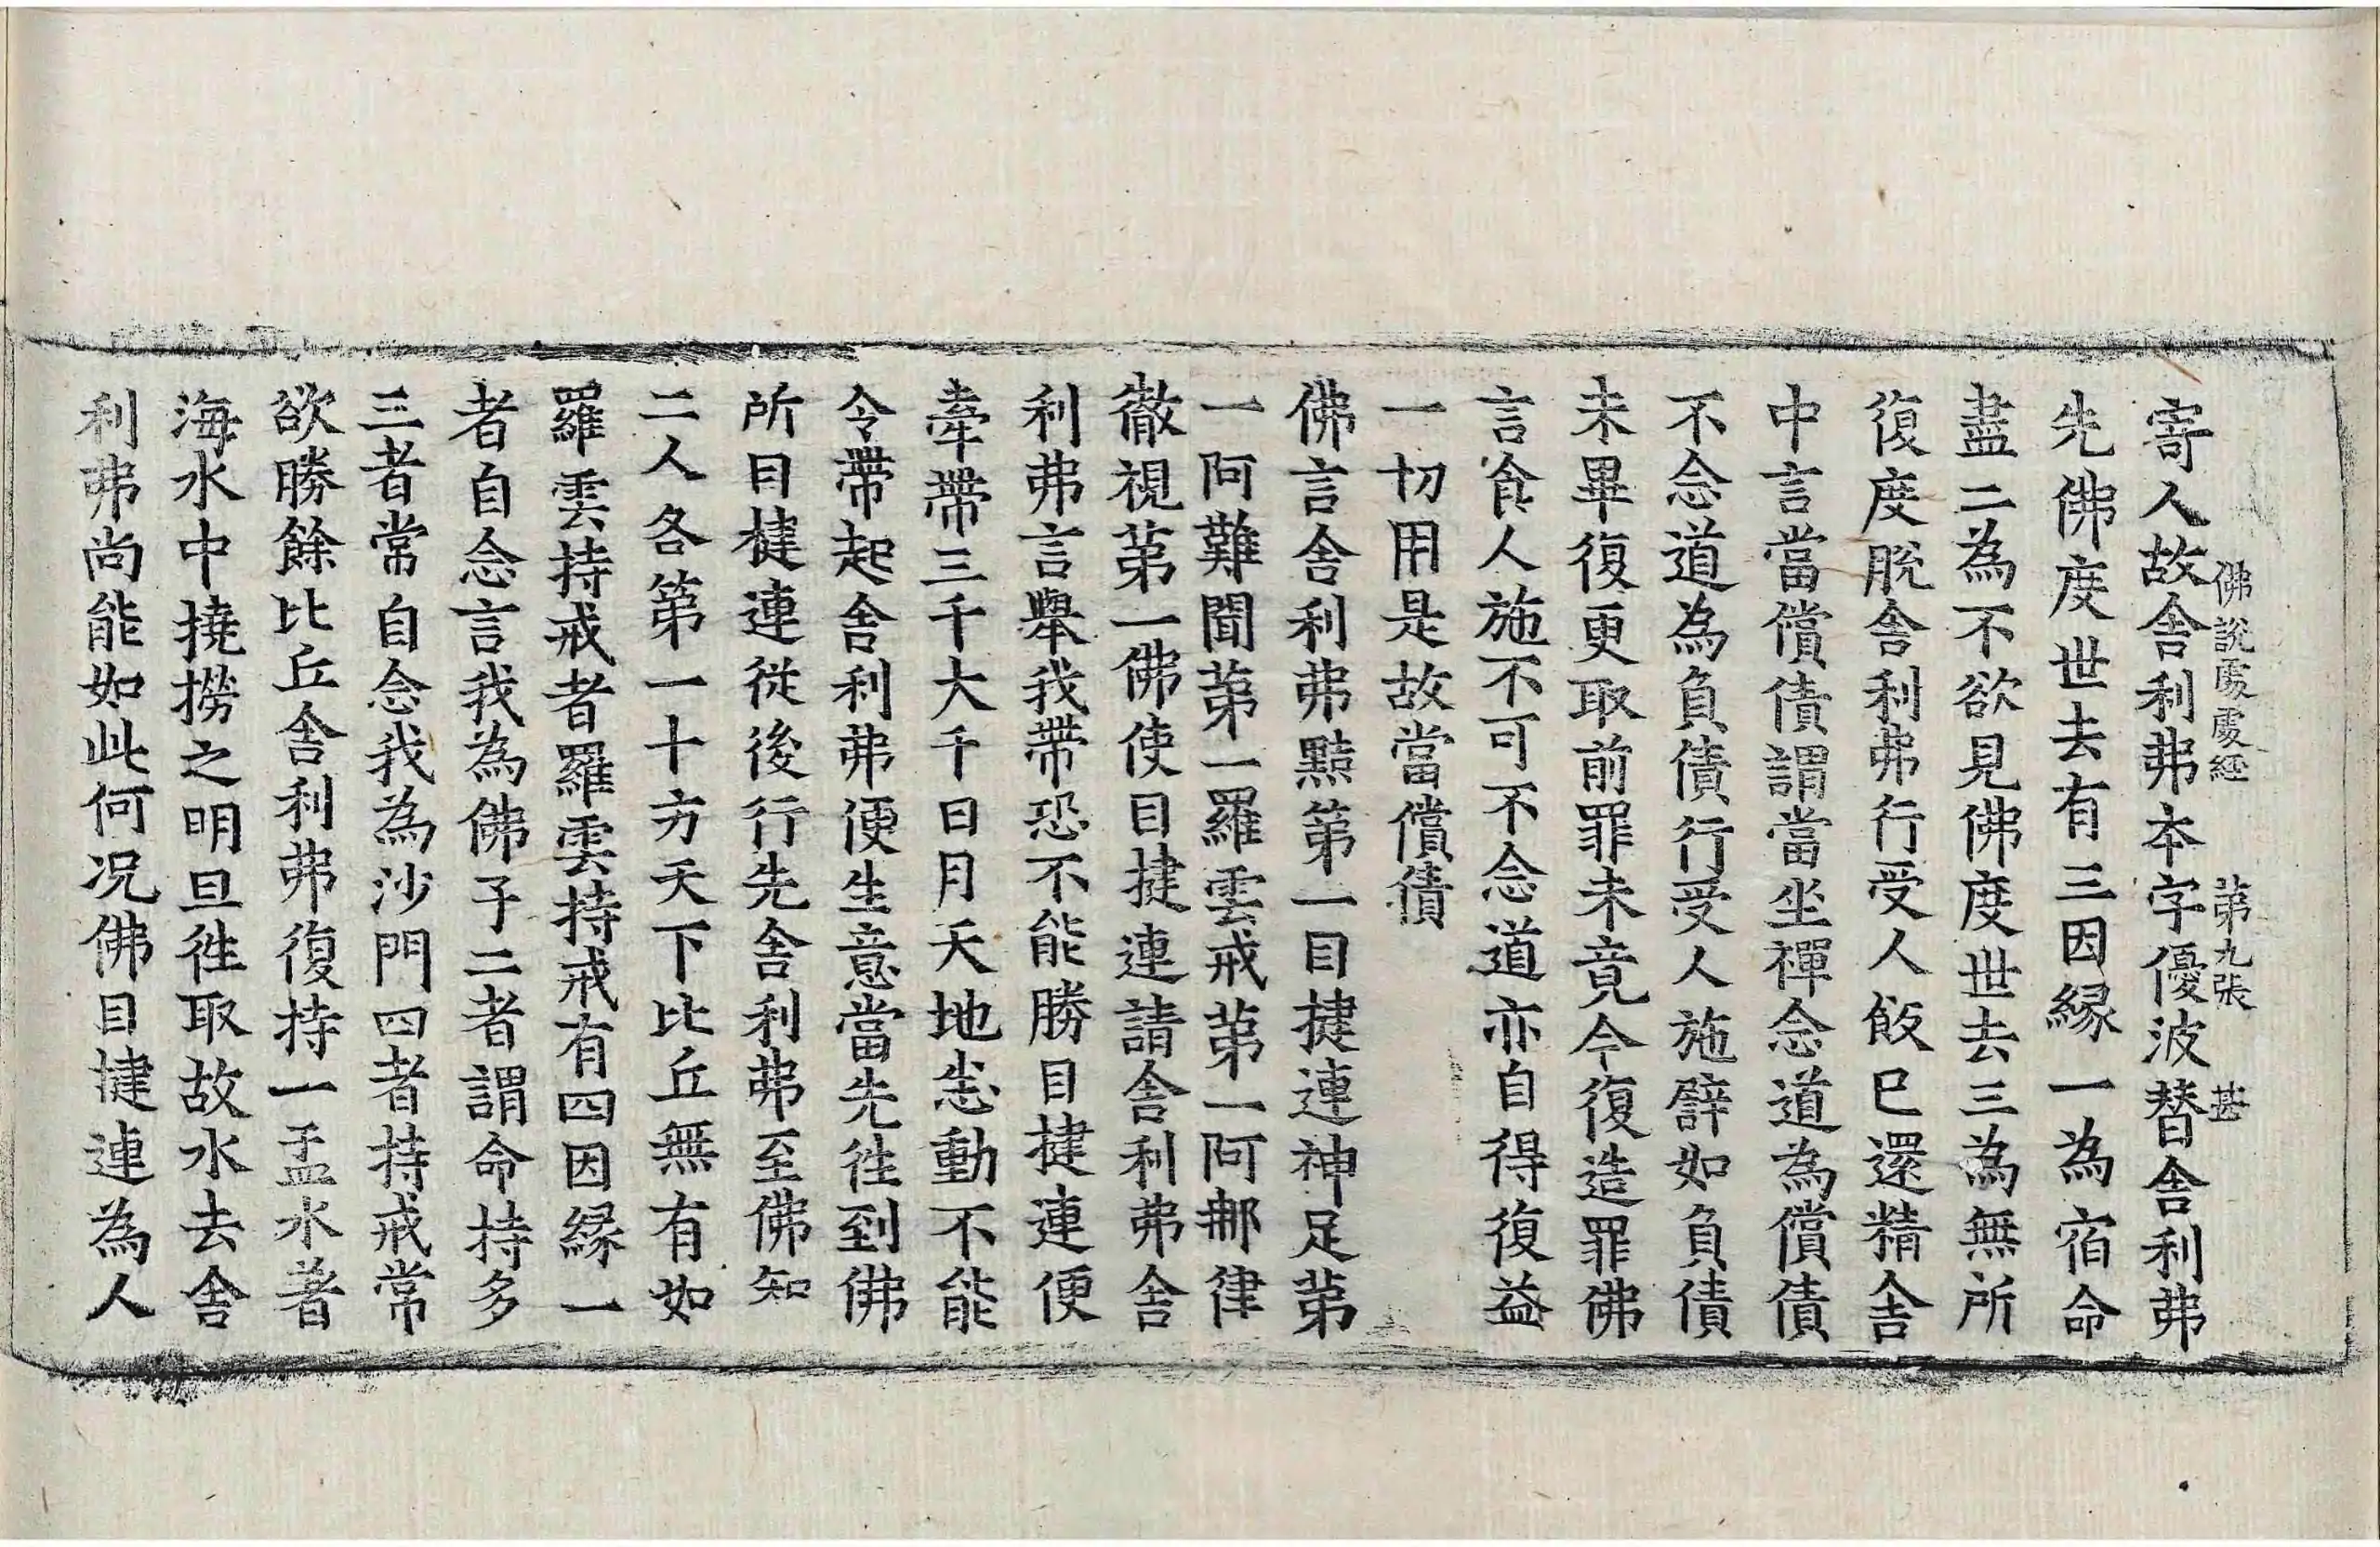 佛說處處經　第九張　甚
寄人故舍利弗本字優波替舍利弗
先佛度世去有三因緣一為宿命
盡二為不欲見佛度世去三為無所
復度脫舍利弗行受人飯已還精舍
中言當償債謂當坐禪念道為償債
不念道為負債行受人施譬如負債
未畢復更取前罪未竟今復造罪佛
言食人施不可不念道亦自得復益
一切用是故當償債
佛言舍利弗黠第一目揵連神足第
一阿難聞第一羅雲戒第一阿那律
徹視第一佛使目揵連請舍利弗舍
利弗言舉我帶恐不能勝目揵連便
牽帶三千大千日月天地悉動不能
令帶起舍利弗便生意當先往到佛
所目揵連從後行先舍利弗至佛知
二人各第一十方天下比丘無有如
羅雲持戒者羅雲持戒有四因緣一
者自念言我為佛子二者謂命持多
三者常自念我為沙門四者持戒常
欲勝餘比丘舍利弗復持一盂水著
海水中撓撈之明旦往取故水去舍
利弗尚能如此何況佛目揵連為人